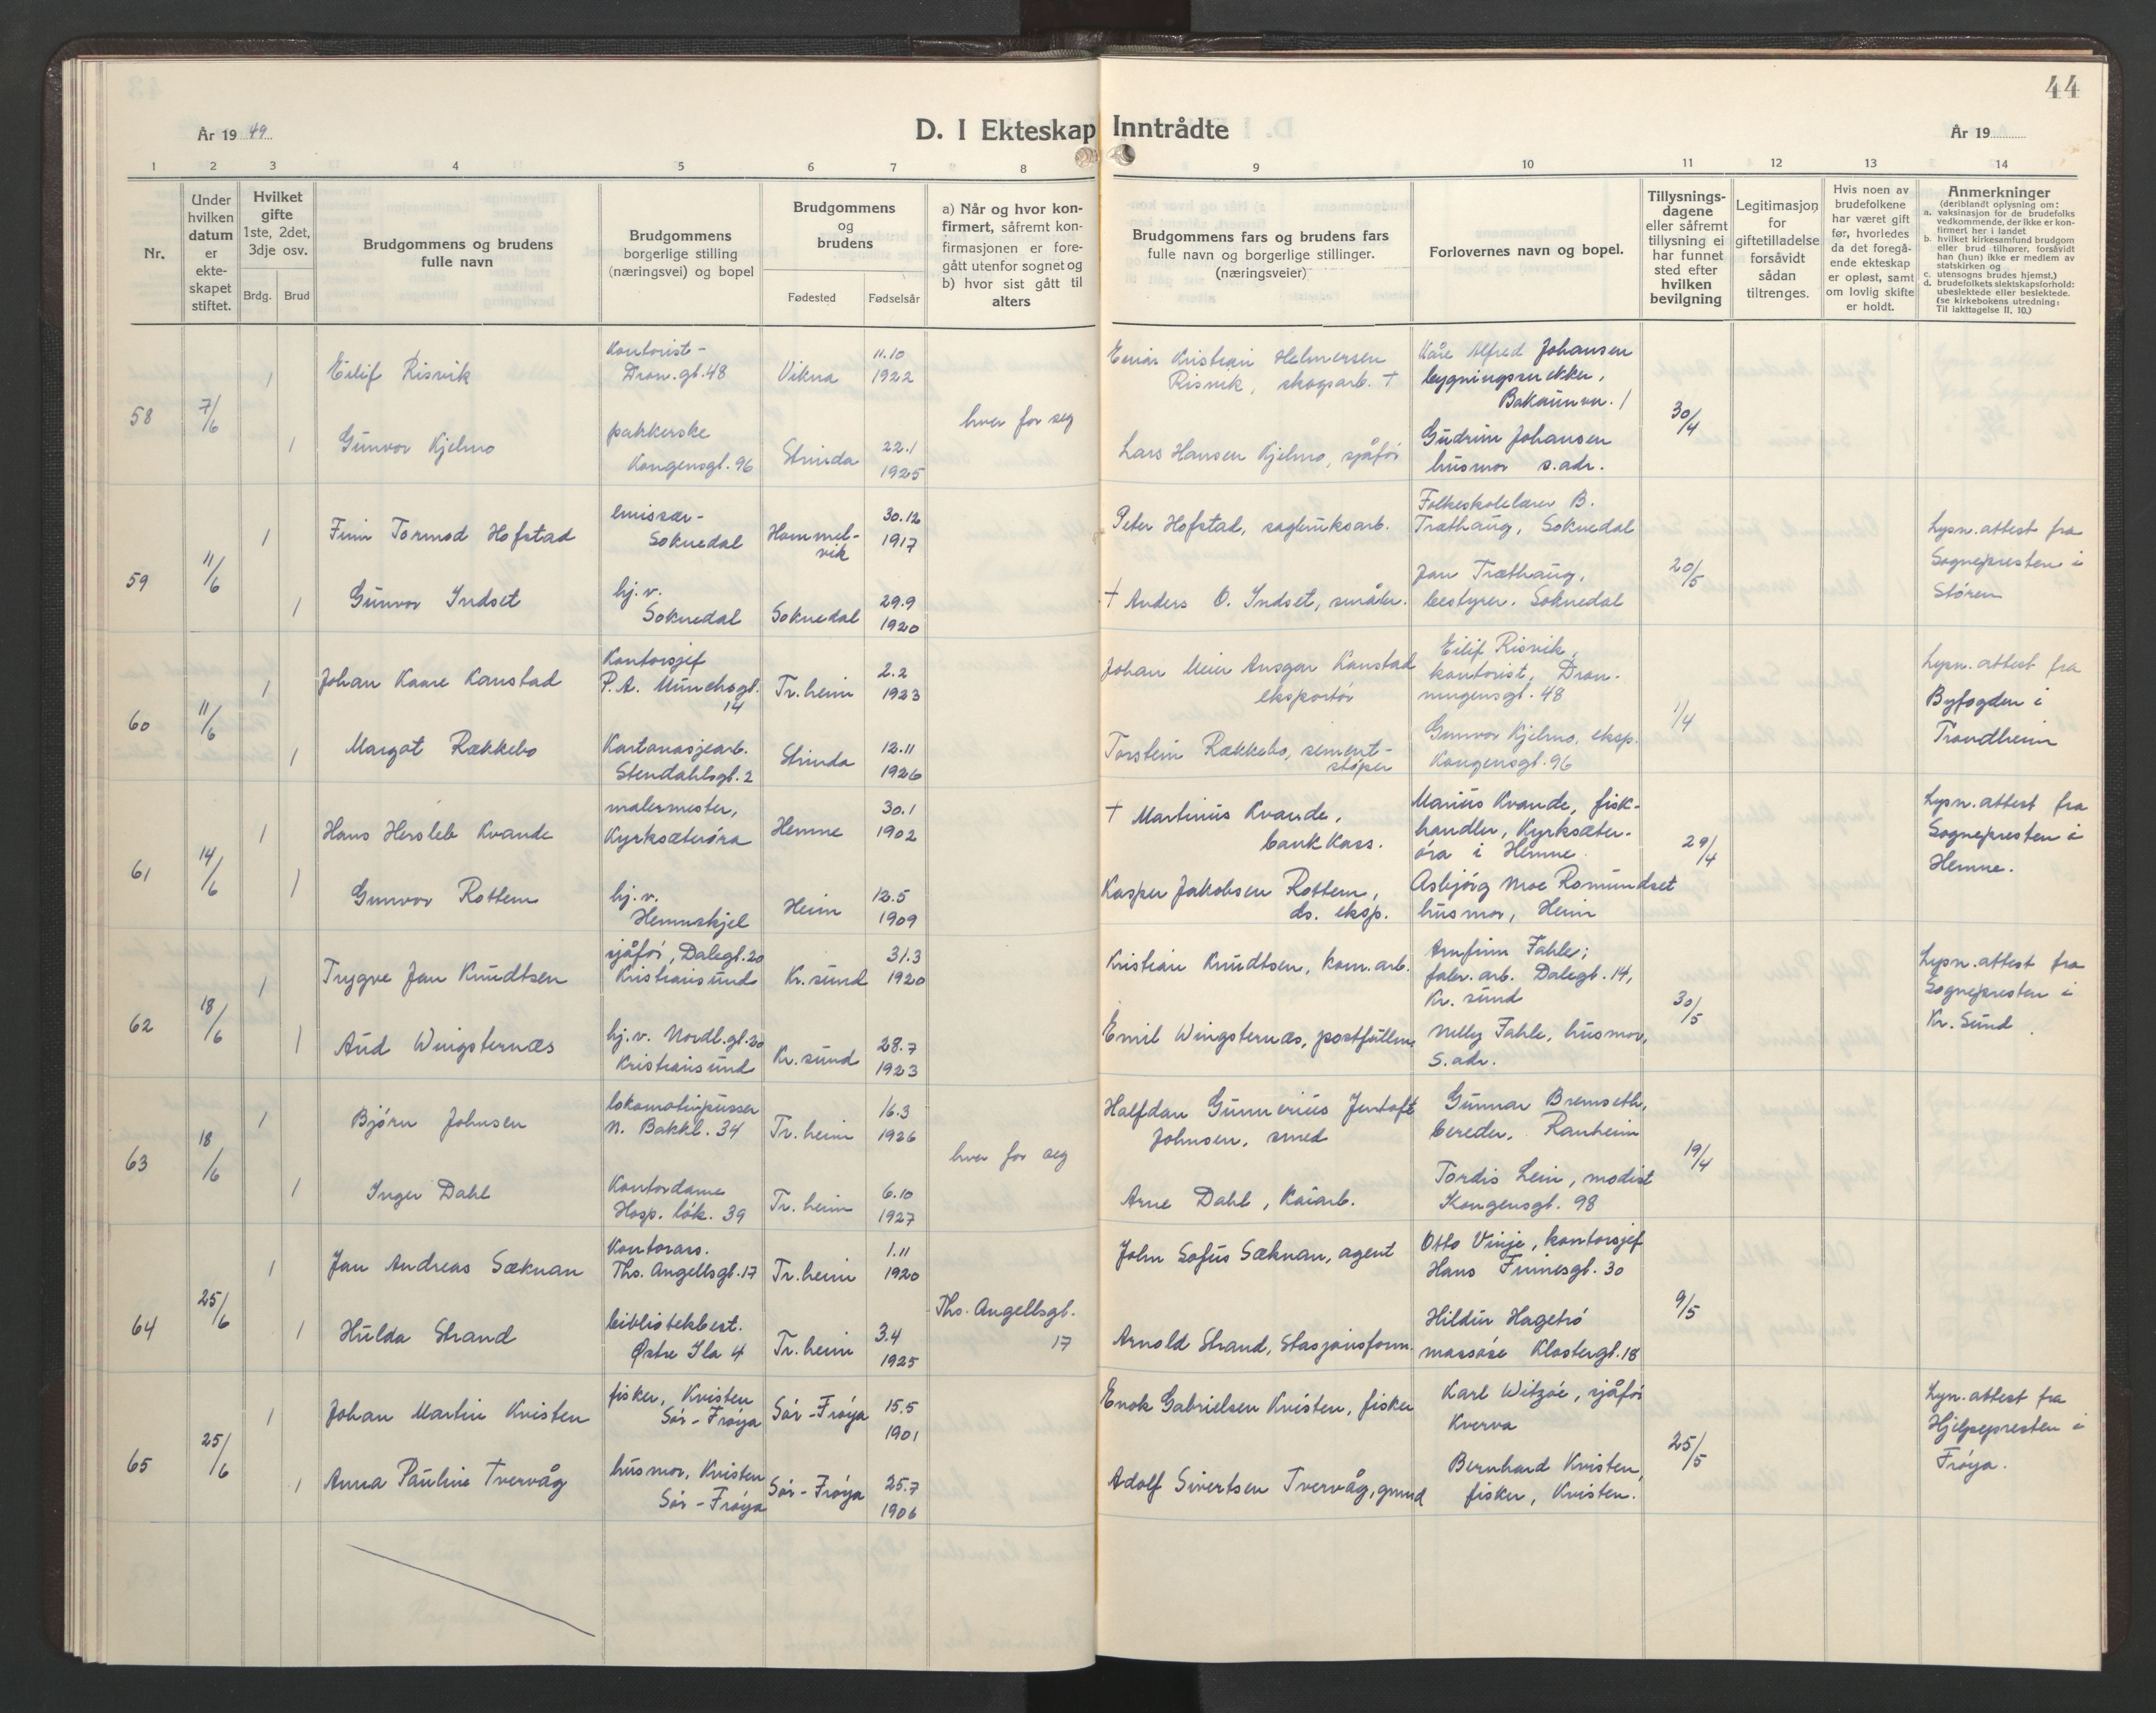 44
År 19 49
D. I Ekteskap Inntrådte
År 19
1 2 3 4 5 6 7 8 9 10 11 12 13 14
Nr.
Under
hvilken
datum
er
ekte-
skapet
stiftet.
Hvilket
gifte
1ste, 2det,
3dje osv.
Brdg. Brud
Brudgommens og brudens
fulle navn
Brudgommens
borgerlige stilling
(næringsvei) og bopel
Brudgommens
og
brudens
Fødested Fødselsår
a) Når og hvor kon-
firmert, såfremt kon-
firmasjonen er fore-
gått utenfor sognet og
b) hvor sist gått til
alters
Brudgommens fars og brudens fars
fulle navn og borgerlige stillinger.
(næringsveier)
Forlovernes navn og bopel.
Tillysnings-
dagene
eller såfremt
tillysning ei
har funnet
sted efter
hvilken
bevilgning
Legitimasjon
for
giftetilladelse
forsåvidt
sådan
tiltrenges.
Hvis noen av
brudefolkene
har været gift
før, hvorledes
da det foregå-
ende ekteskap
er opløst, samt
om lovlig skifte
er holdt.
Anmerkninger
(deriblandt oplysning om:
a. vaksinasjon for de brudefolks
vedkommende, der ikke er kon-
firmert her i landet
b. hvilket kirkesamfund brudgom
eller brud tilhører, forsåvidt
han (hun) ikke er medlem av
statskirken og
c. utensogns brudes hjemst.)
d. brudefolkets slektskapsforhold:
ubeslektede eller beslektede.
(se kirkebokens utredning:
Til iakttagelse II. 10.)
58
7/6
1
Eilif Risvik
Kontorist-
Dron.gt.48
Vikna
11.10
1922
Kristian Helmersen
Risvik, skogsarb. +
Kåre Alfred Johansen
bygningssnekker,
30/4
1
Gunvor Kjelmo
pakkerske
Kongensgt. 96
Strinda
22.1
1925
hver for seg
Lars Hansen Kjelmo, sjåfør
Gudrun Johansen
husmor s.adr.
59
11/6
1
Finn Tormod Hofstad
emissær-
Soknedal
Hommel-
vik
30.12
1917
Peter Hofstad, sagbruksarb.
Folkeskolelærer B.
Træthaug, Soknedal
20/5
Lysn.attest fra
Sognepresten i
Støren
1
Gunvor Indset
hj.v.
Soknedal
Soknedal
29.9
1920
+ Anders O. Indset, småbr.
Jan Træthaug,
bestyrer. Soknedal
60
11/6
1
Johan Kaare Kanstad
Kontorsjef
P.A. Munchsgt.
14
Tr.heim
2.2
1923
Johan Meier Ansgar Kanstad
eksportør
Eilif Risvik,
kontorist, Dron-
ningensgt. 48
1/4
Lysn.attest fra
Byfogden i
Trondheim
1
Margot Rækkebo
Kartonasjearb.
Stendahlsgt. 2
Strinda
12.11
1926
Torstein Rækkebo, sement-
støper
Gunvor Kjelmo, eksp.
Kongensgt. 96
61
14/6
1
Hans Hersleb Kvande
malermester,
Kyrksæterøra
Hemne
30.1
1902
+ Martinus Kvande,
bank Kass.
Marius Kvande, fisk-
handler, Kyrksæter-
øra i Hemne
29/4
Lysn.attest fra
Sognepresten i
Hemne.
1
Gunvor Rottem
hj.v.
Hemnskjel
Heim
12.5
1909
Kasper Jakobsen Rottem,
ds. eksp.
Asbjørg Moe Romundset
husmor, Heim
62
18/6
1
Trygve Jan Knudtsen
sjåfør, Dalegt.20
Kristiansund
Kr.sund
31.3
1920
Kristian Knudtsen, kom.arb.
Arnfinn Fahle;
fabr.arb. Dalegt. 14,
Kr. sund
30/5
Lysn.attest fra
Sognepresten i
Kr. Sund.
1
Aud Wingsternæs
hj.v. Nordl.gt.20
Kristiansund
Kr.sund
28.7
1923
Emil Wingsternæs, postfullm.
Nelly Fahle, husmor,
s.adr.
63
18/6
1
Bjørn Johnsen
lokomotivpusser
N. Bakkl. 34
Tr.heim
16.3
1926
hver for seg
Halfdan Gunnerius Jentoft
Johnsen, smed
Gunnar Bremseth,
bereder, Ranheim
19/4
1
Inger Dahl
Kontordame
Hosp. løk. 39
Tr.heim
6.10
1927
Arne Dahl, Kaiarb.
Tordis Lein, modist
Kongensgt. 98
64
25/6
1
Jan Andreas Sæknan
Kontorass.
Ths. Angellsgt.17
Tr.heim
1.11
1920
Ths. Angellsgt.
17
John Sofus Sæknan, agent
Otto Vinje, kontorsjef
Hans Finnesgt. 30
9/5
1
Hulda Strand
bibliotekbest.
Østre Ila 4
Tr.heim
3.4
1925
Arnold Strand, Stasjonsform.
Hildur Hagetrø
massøse Klostergt.18
65
25/6
1
Johan Martin Kvisten
fisker, Kvisten
Sør-Frøya
Sør-Frøya
15.5
1901
Enok Gabrielsen Kvisten, fisker
Karl Witzøe, sjåfør
Kverva
25/5
Lyn.attest fra
Hjelpepresten i
Frøya.
1
Anna Pauline Tvervåg
husmor, Kvisten
Sør-Frøya
Sør-Frøya
25.7
1906
Adolf Sivertsen Tvervåg,
Bernhard Kvisten,
fisker, Kvisten.